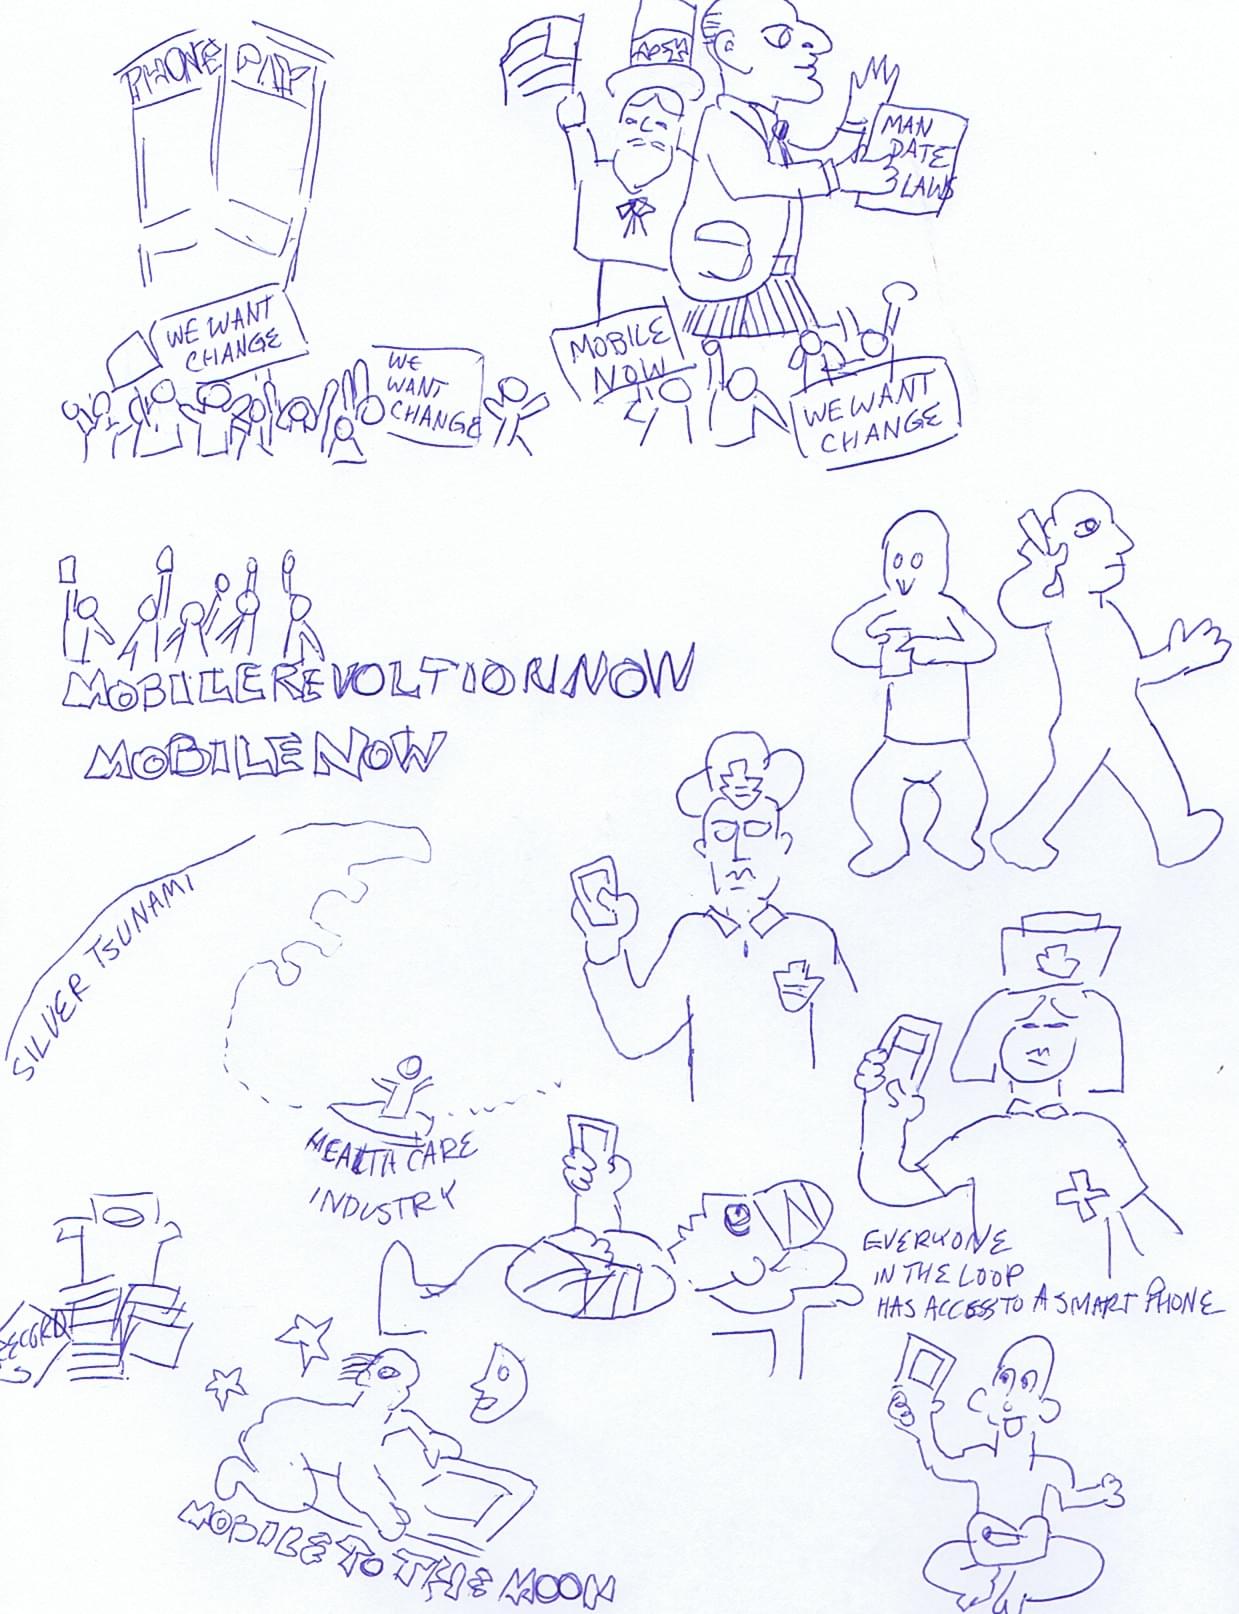 PHONE PAY
MAN
DATE
LAWS
WE WANT
CHANGE
WE
WANT
CHANGE
MOBILE
NOW
WE WANT
CHANGE
MOBILE REVOLTION NOW
MOBILE NOW
SILVER TSUNAMI
HEALTH CARE
INDUSTRY
EVERYONE
IN THE LOOP
HAS ACCESS TO A SMART PHONE
MOBILE TO THE MOON